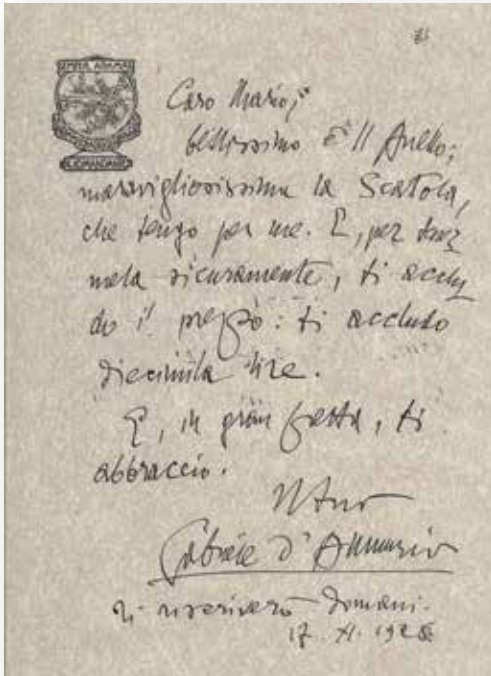 IL COMANDANTE
Caro Mario,
bellissimo è l'Anello;
maravigliosissima la Scatola,
che tengo per me. E, per tener
mela sicuramente, ti acclu
do il prezzo: ti accludo
diecimila lire.
E, in gran fretta, ti
abbraccio.
Il tuo
Gabriele d'Annunzio
Ti riscriverò domani.
17. XI. 192